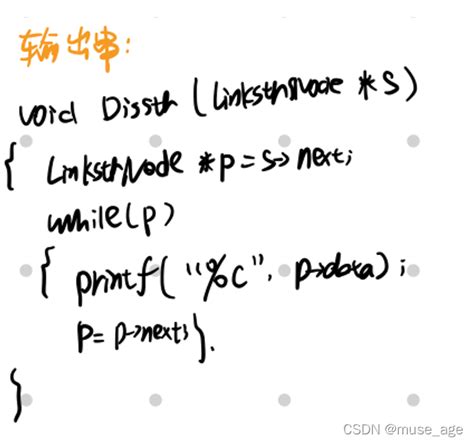 输出串:
void Dissth (LinksthNode *s)
{ LinksthNode *p=s->next;
while(p)
{ printf("%c", p->data);
p= p->next;}.
}
CSDN @muse_age